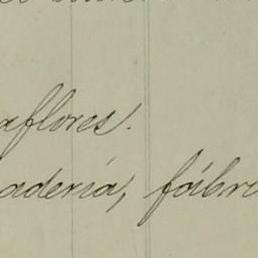 aflores.
adería, fábri